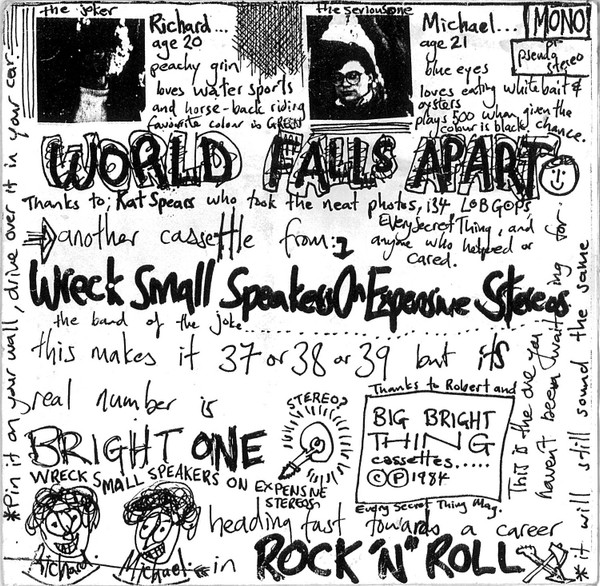 the joker
Richard...
age 20
peachy grin
loves water sports
and horse-back riding
favourite colour is GREEN
the serious one
Michael...
age 21
blue eyes
loves eating whitebait &
oysters
plays 500 when given the chance.
colour is black
MONO!
or
pseudo
stereo
WORLD FALLS APART
Thanks to; Kat Spears who took the neat photos, i34
Every Secret Thing, and
anyone who helped or
cared.
another cassette from:
Wreck Small Speakers On Expensive Stereos
the band of the joke
this makes it 37 or 38 or 39 but its
real number is
BRIGHT ONE
WRECK SMALL SPEAKERS ON EXPENSIVE
STEREOS
STEREO?
Thanks to Robert and
BIG BRIGHT
THING
cassettes.....
© Ⓟ 1984
Every Secret Thing Mag.
Richard
Michael
heading fast towards a career
in ROCK 'N' ROLL
*Pin it on your wall, drive over it in your car.
This is the one you
haven't been waiting for
* it will still sound the same